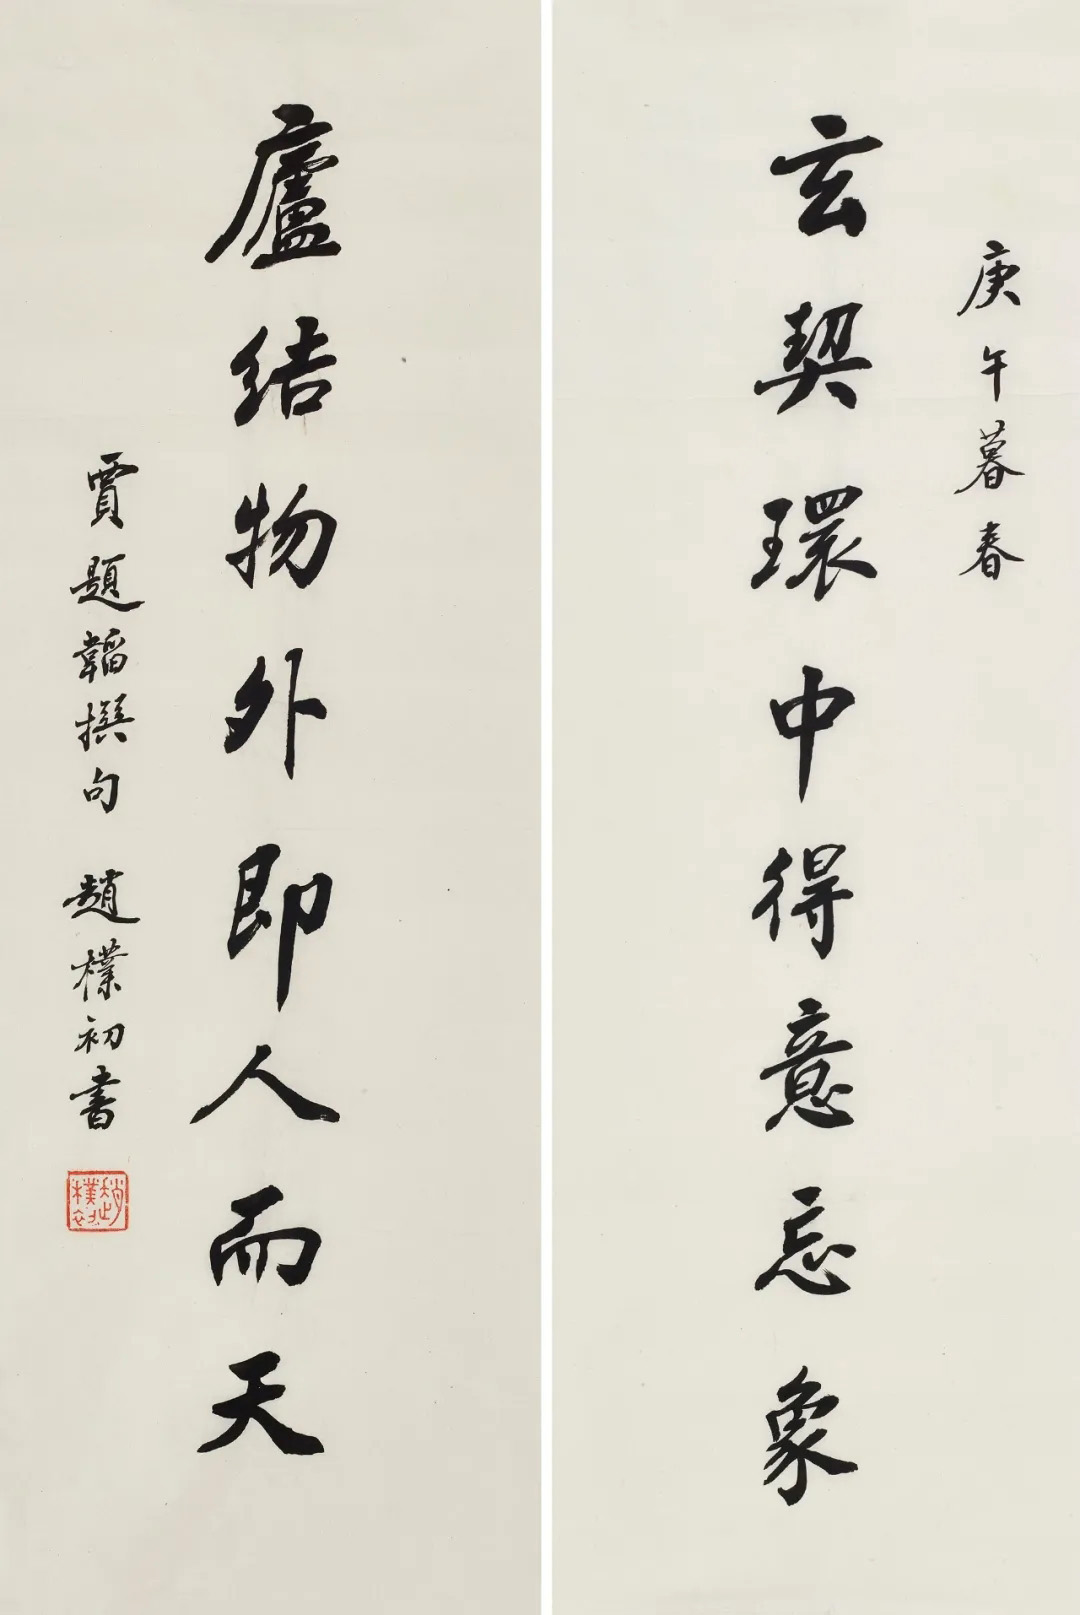 庚午暮春
玄契環中得意忘象
廬結物外即人而天
賈題韜撰句 趙樸初書
趙樸初